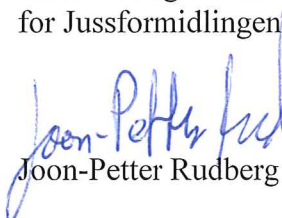 for Jussformidlingen
Joon-Petter Rud
Joon-Petter Rudberg